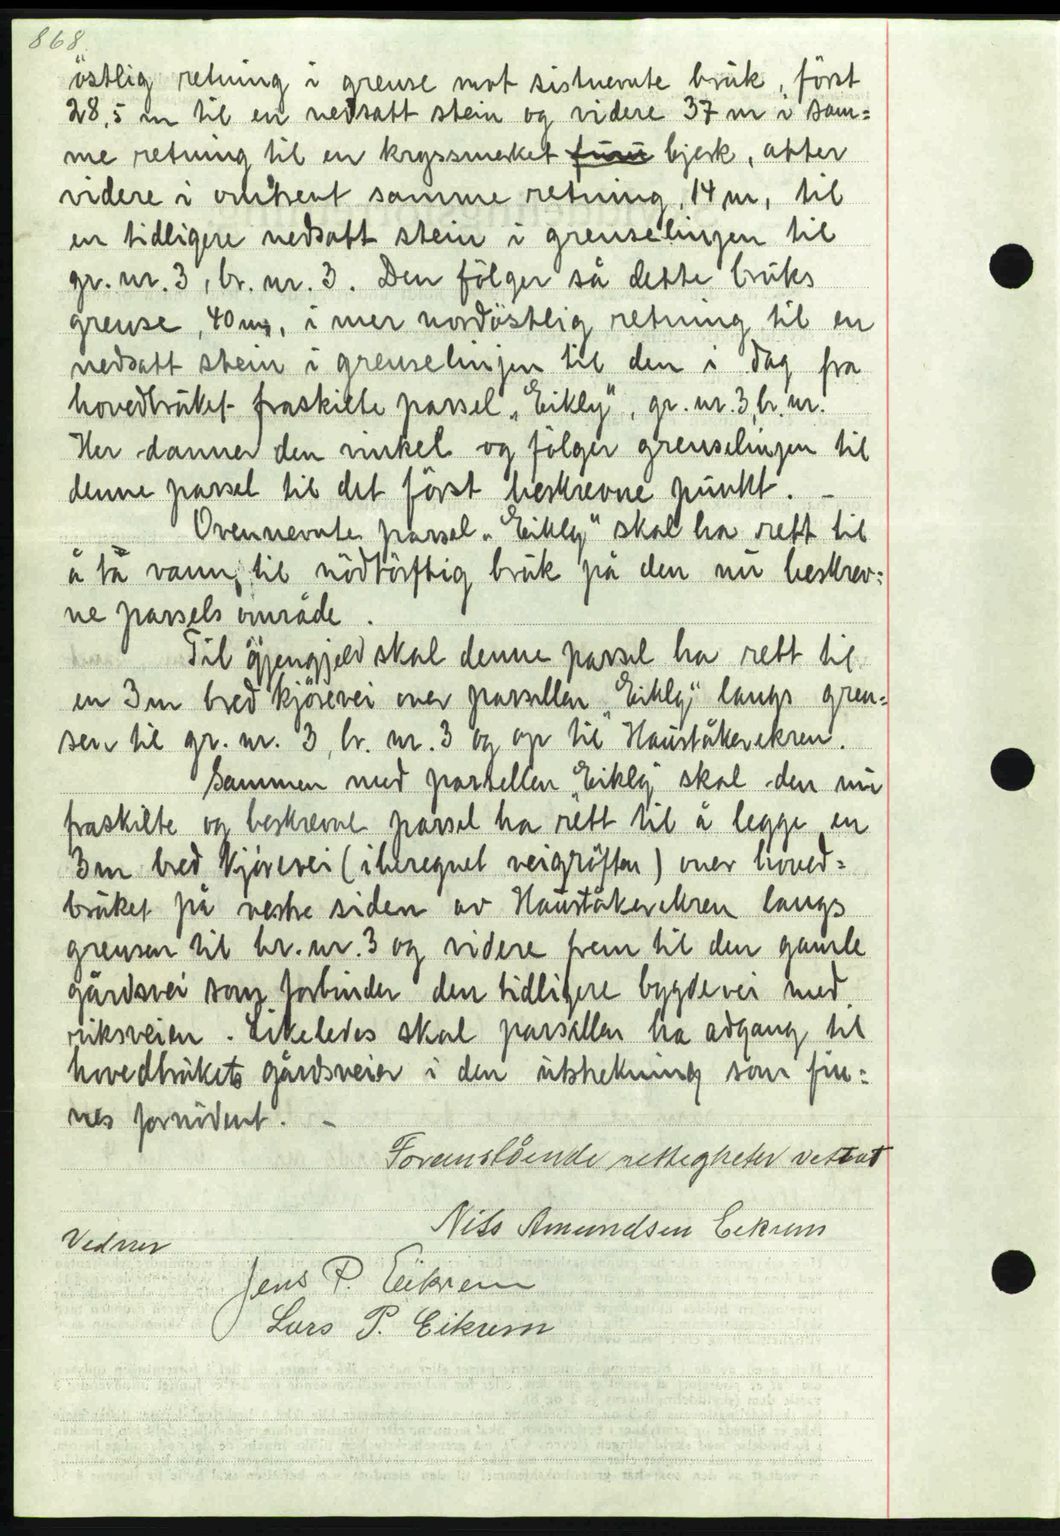 868.
östlig retning i grense mot sistnevnte bruk, först
28,5 m til en nedsatt stein og videre 37 m i sam=
me retning til en kryssmerket furu bjerk, atter
videre i omtrent samme retning, 14 m, til
en tidligere nedsatt stein i grenselinjen til
gr. nr. 3, br. nr. 3. Den fölger så dette bruks
grense, 40 m, i mer nordöstlig retning til en
nedsatt stein i grenselinjen til den i dag fra
hovedbruket fraskilte parsel „Eikly", gr. nr. 3, br. nr.
Her danner den vinkel og fölger grenselinjen til
denne parsel til det först beskrevne punkt. -
Ovennevnte parsel „Eikly" skal ha rett til
å ta vann til nödtörftig bruk på den nu beskrev=
ne parsels område.
Til gjengjeld skal denne parsel ha rett til
en 3 m bred kjörevei over parsellen „Eikly" langs gren=
sen til gr. nr. 3, br. nr. 3 og op til Hauståkerekren.
Sammen med parsellen „Eikly" skal den nu
fraskilte og beskrevne parsel ha rett til å legge en
3 m bred kjörevei (iberegnet veigröften) over hoved=
bruket på vestre siden av Hauståkerekren langs
grensen til br. nr. 3 og videre frem til den gamle
gårdsvei som forbinder den tidligere bygdevei med
riksveien. Likeledes skal parsellen ha adgang til
hovedbrukets gårdsveier i den utstrekning som fin=
nes fornödent. -
Foranstående rettigheter vettat
Nils Amundsen Eikrem
Vidner
Jens P. Eikrem
Lars P. Eikrem